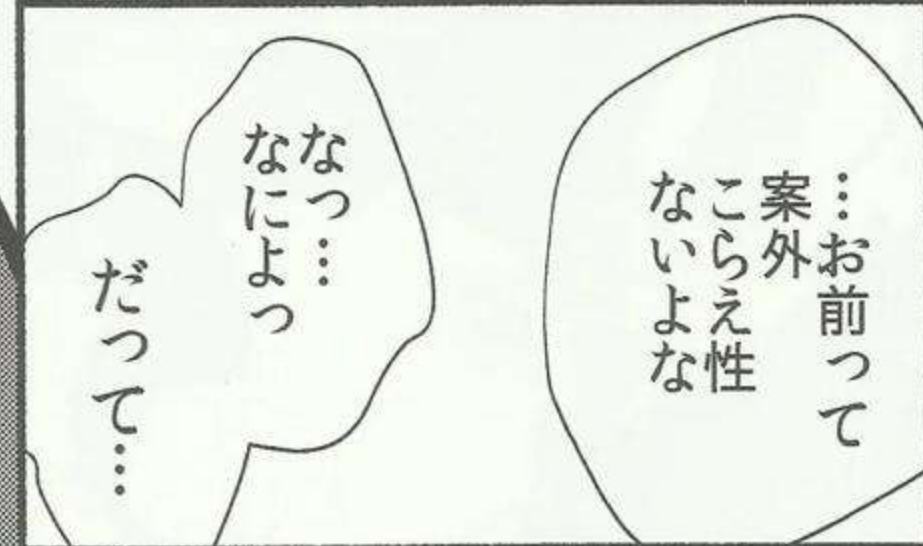 …お前って
案外
こらえ性
ないよな
なっ…
なによっ
だって…